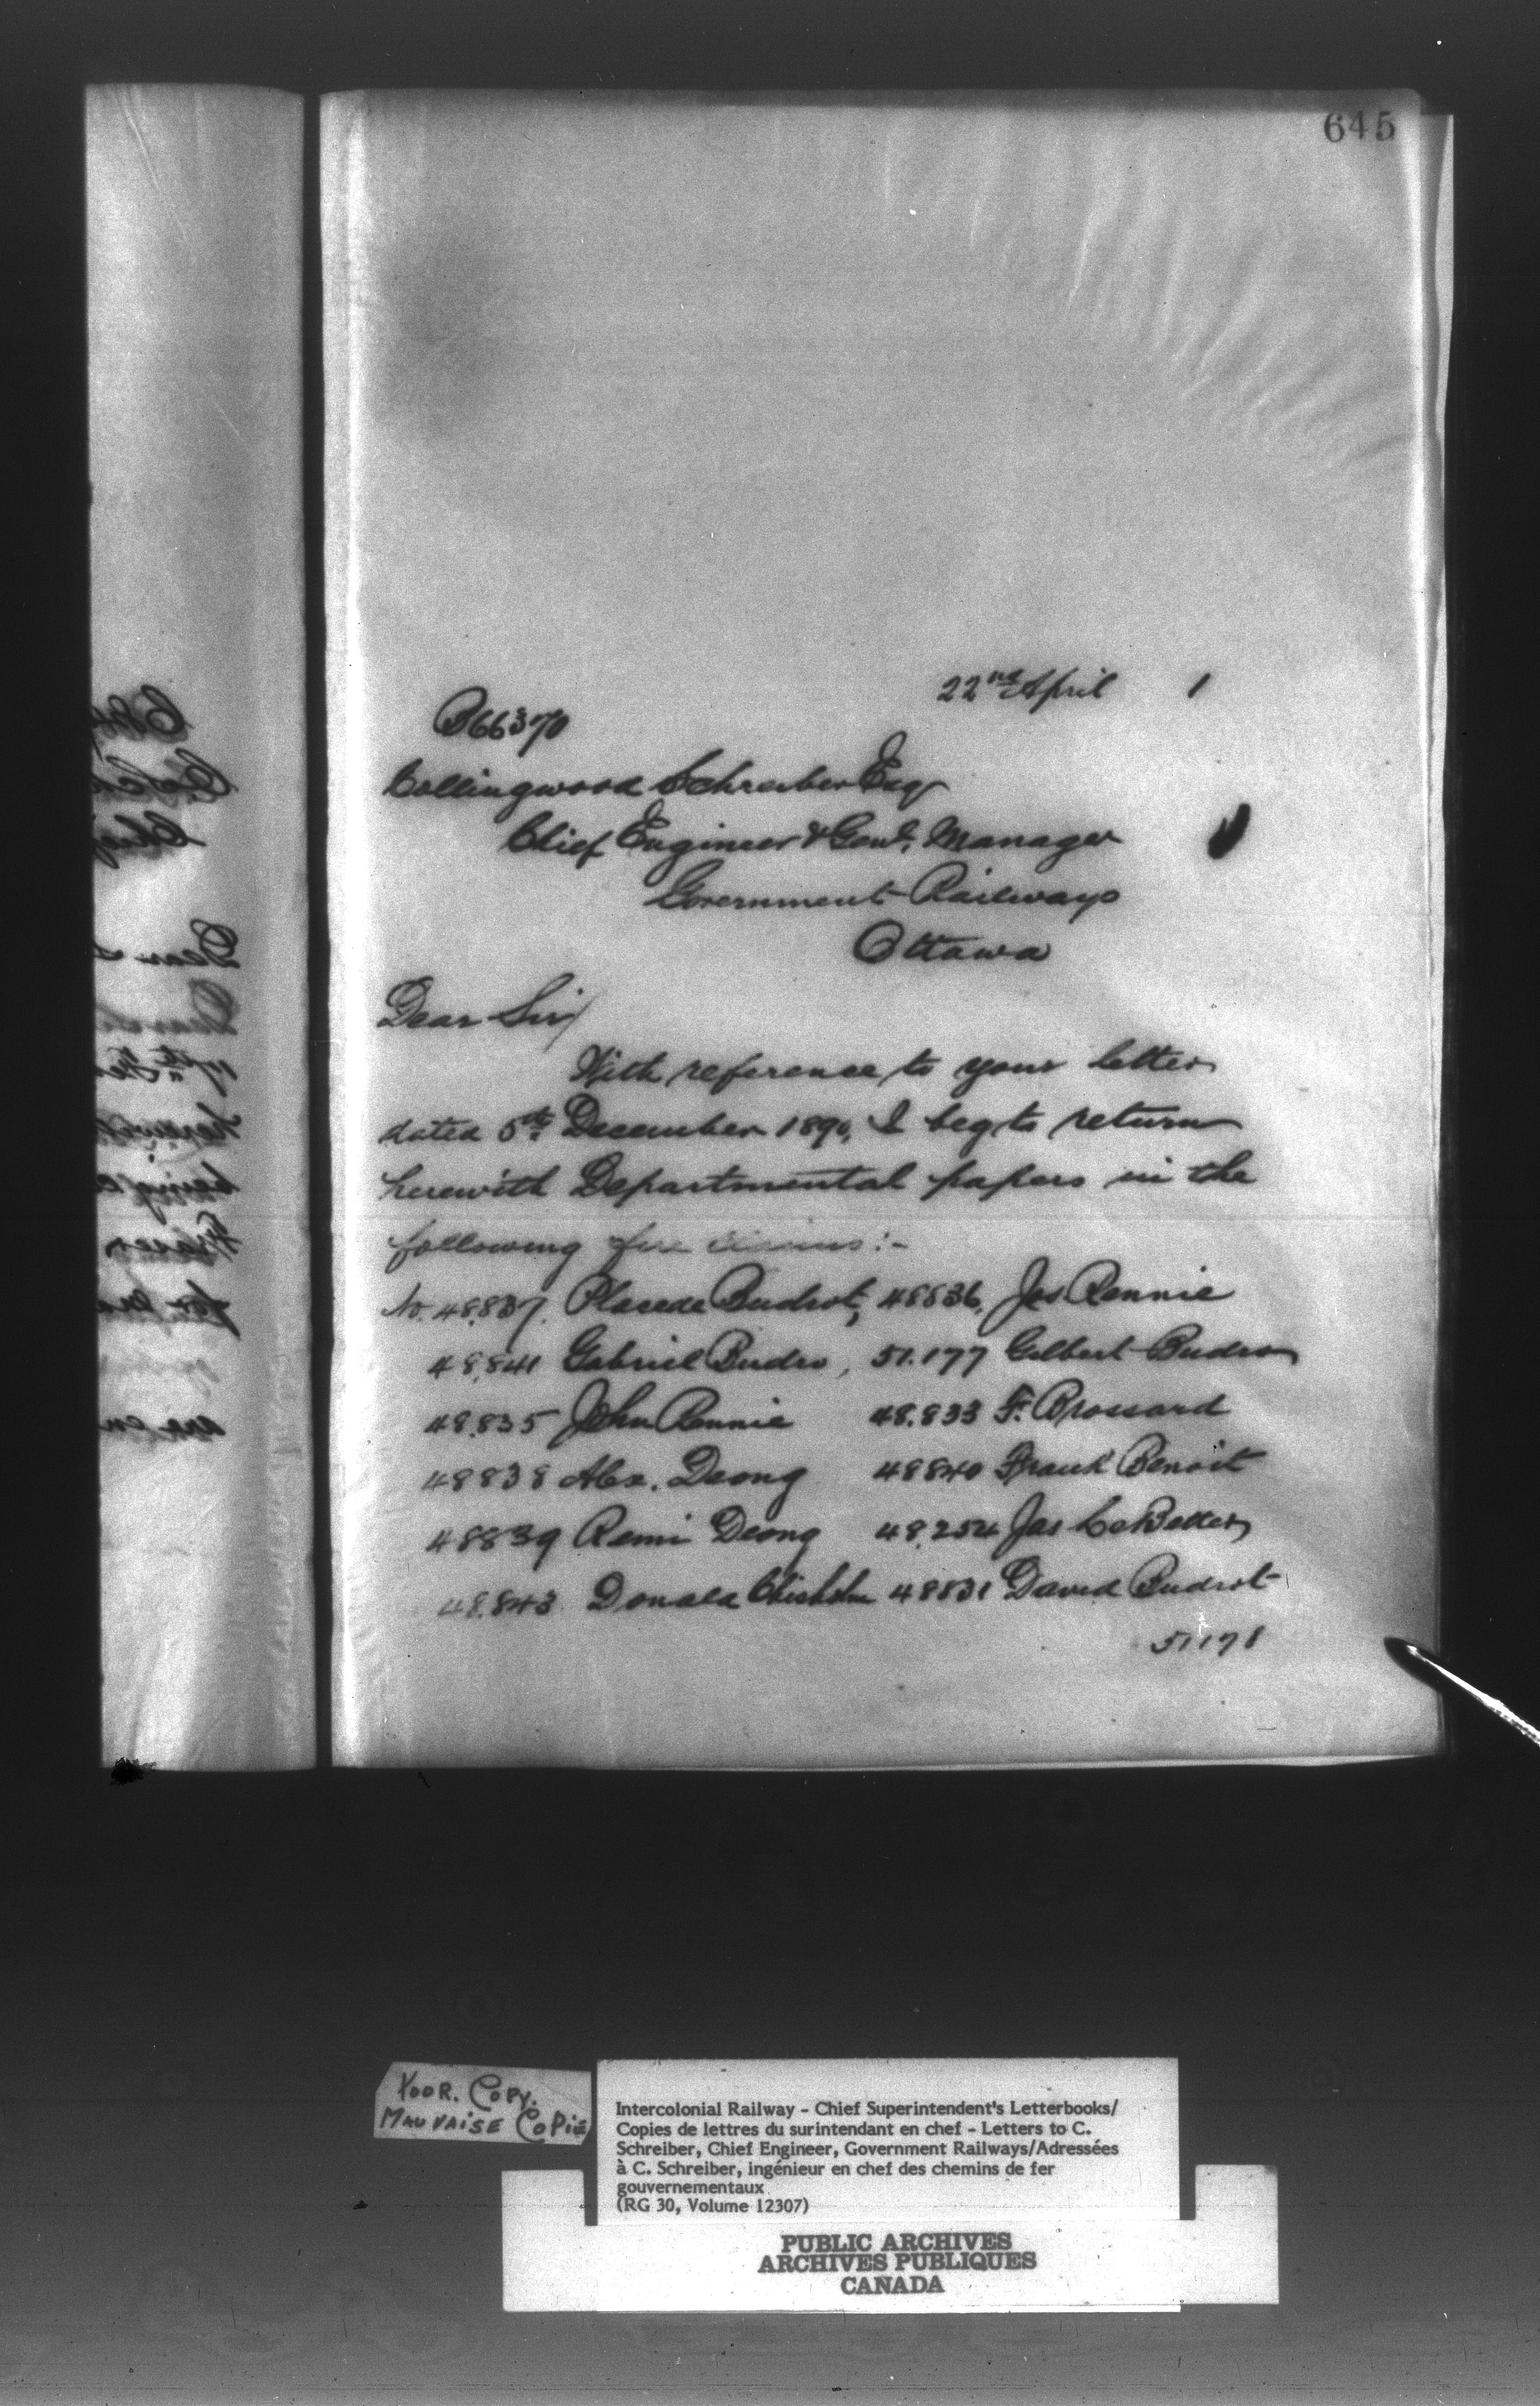 645
22nd April 1
B66370
Collingwood Schreiber Esq
Chief Engineer & Genl. Manager
Government Railways
Ottawa
Dear Sir/
With reference to your letter
dated 5th December 1890, I beg to return
herewith Departmental papers in the
following fire claims:-
No. 48,837. Placede Budrot, 48836, Jas Rennie
48,841 Gabriel Budro, 51.177 Gilbert Budro
48,835 John Rennie 48.833 F. Brossard
48838 Alex. Deong 48840 Frank Benoit
48839 Remi Deong 48,254 Jas LeBetter
48,843 Donald Chisholm 48831 David Budrot
51178
Poor. Copy.
Mauvaise Copie
Intercolonial Railway - Chief Superintendent's Letterbooks/
Copies de lettres du surintendant en chef - Letters to C.
Schreiber, Chief Engineer, Government Railways/Adressées
à C. Schreiber, ingénieur en chef des chemins de fer
gouvernementaux
(RG 30, Volume 12307)
PUBLIC ARCHIVES
ARCHIVES PUBLIQUES
CANADA